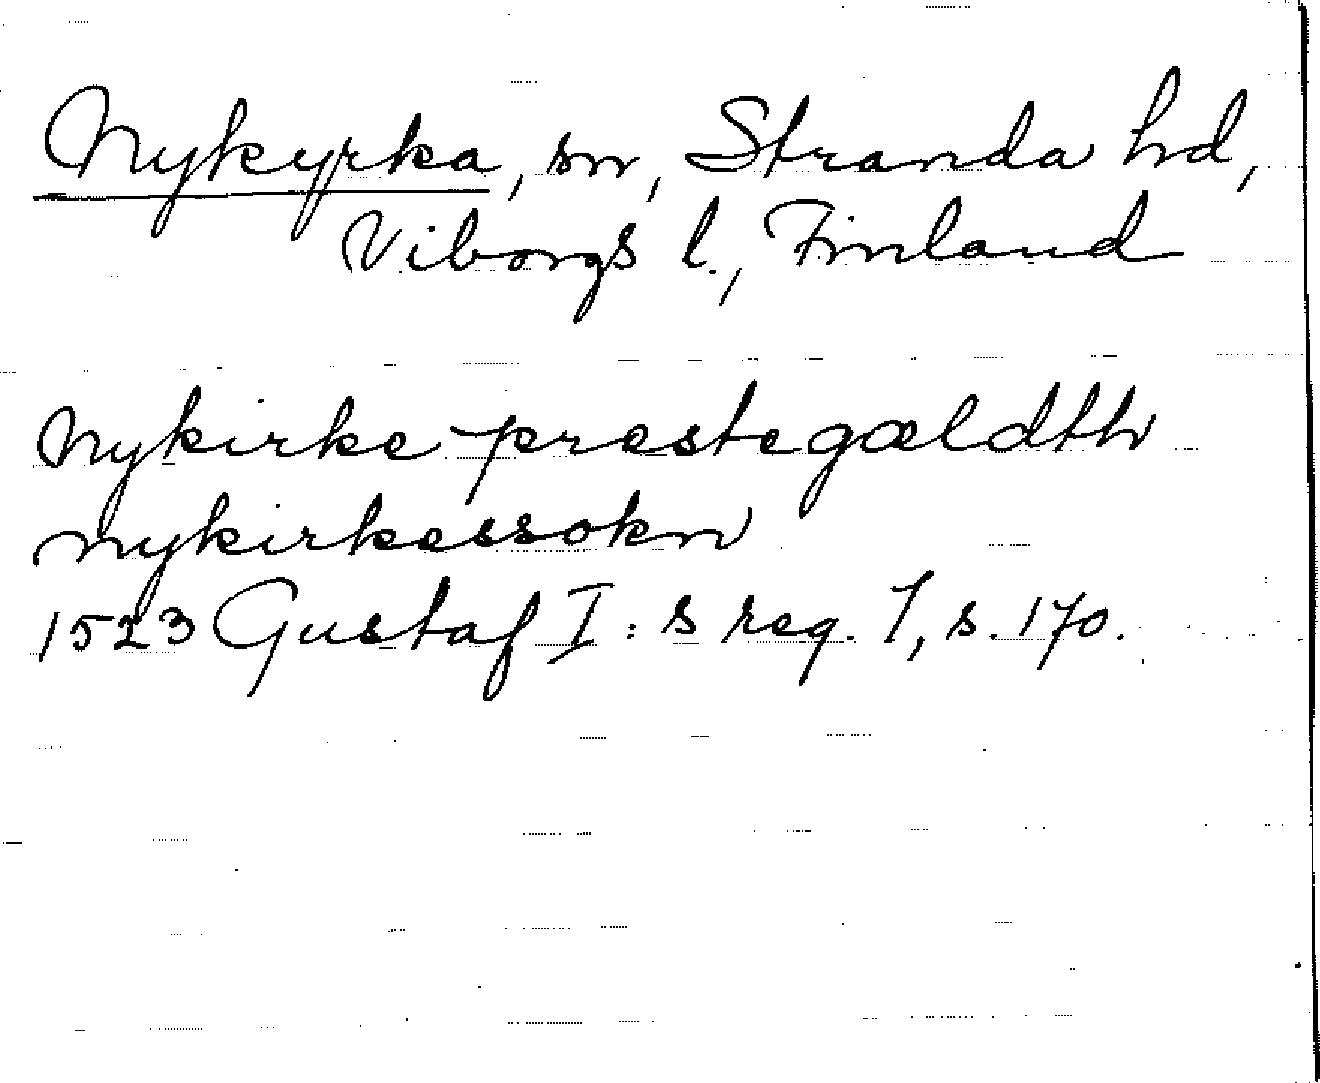 Nykyrka, sn, Stranda hd,
Viborgs l., Finland
Nykirke prestegældth
nykirkessokn
1523 Gustaf I:s reg. 1, s. 170.